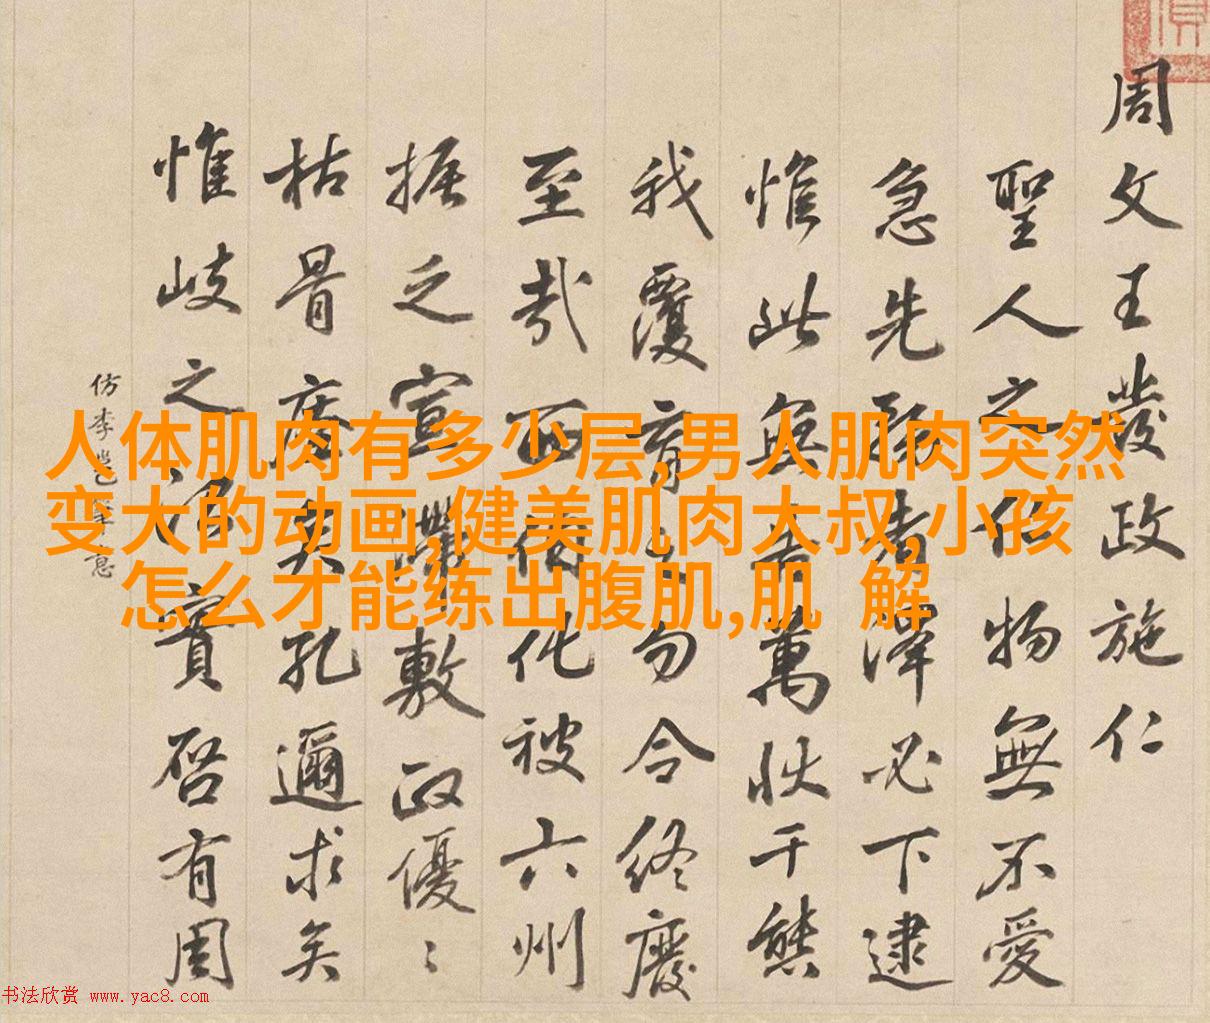 周文王發政施仁
聖人之物無不愛
急先者澤必下逮
惟此無告萬狀千態
我覆育之勿令終廢
至哉西伯化被六州
之宣敷政優〻
枯骨矣孔邇求矣
惟岐之實啓有周
仿李邕筆意
人体肌肉有多少层,男人肌肉突然
变大的动画,健美肌肉大叔,小孩
怎么才能练出腹肌,肌 解
书法欣赏 www.yac8.com